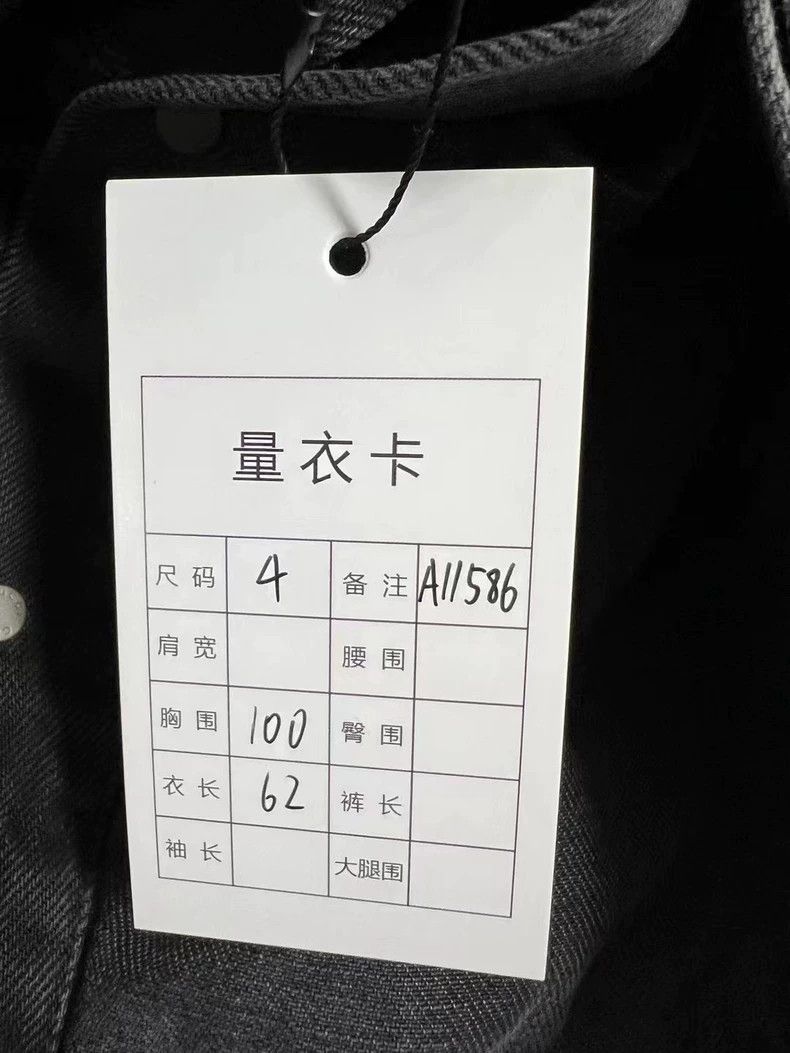 量衣卡
尺码 4 备注 A11586
肩宽 腰围
胸围 100 臀围
衣长 62 裤长
袖长 大腿围